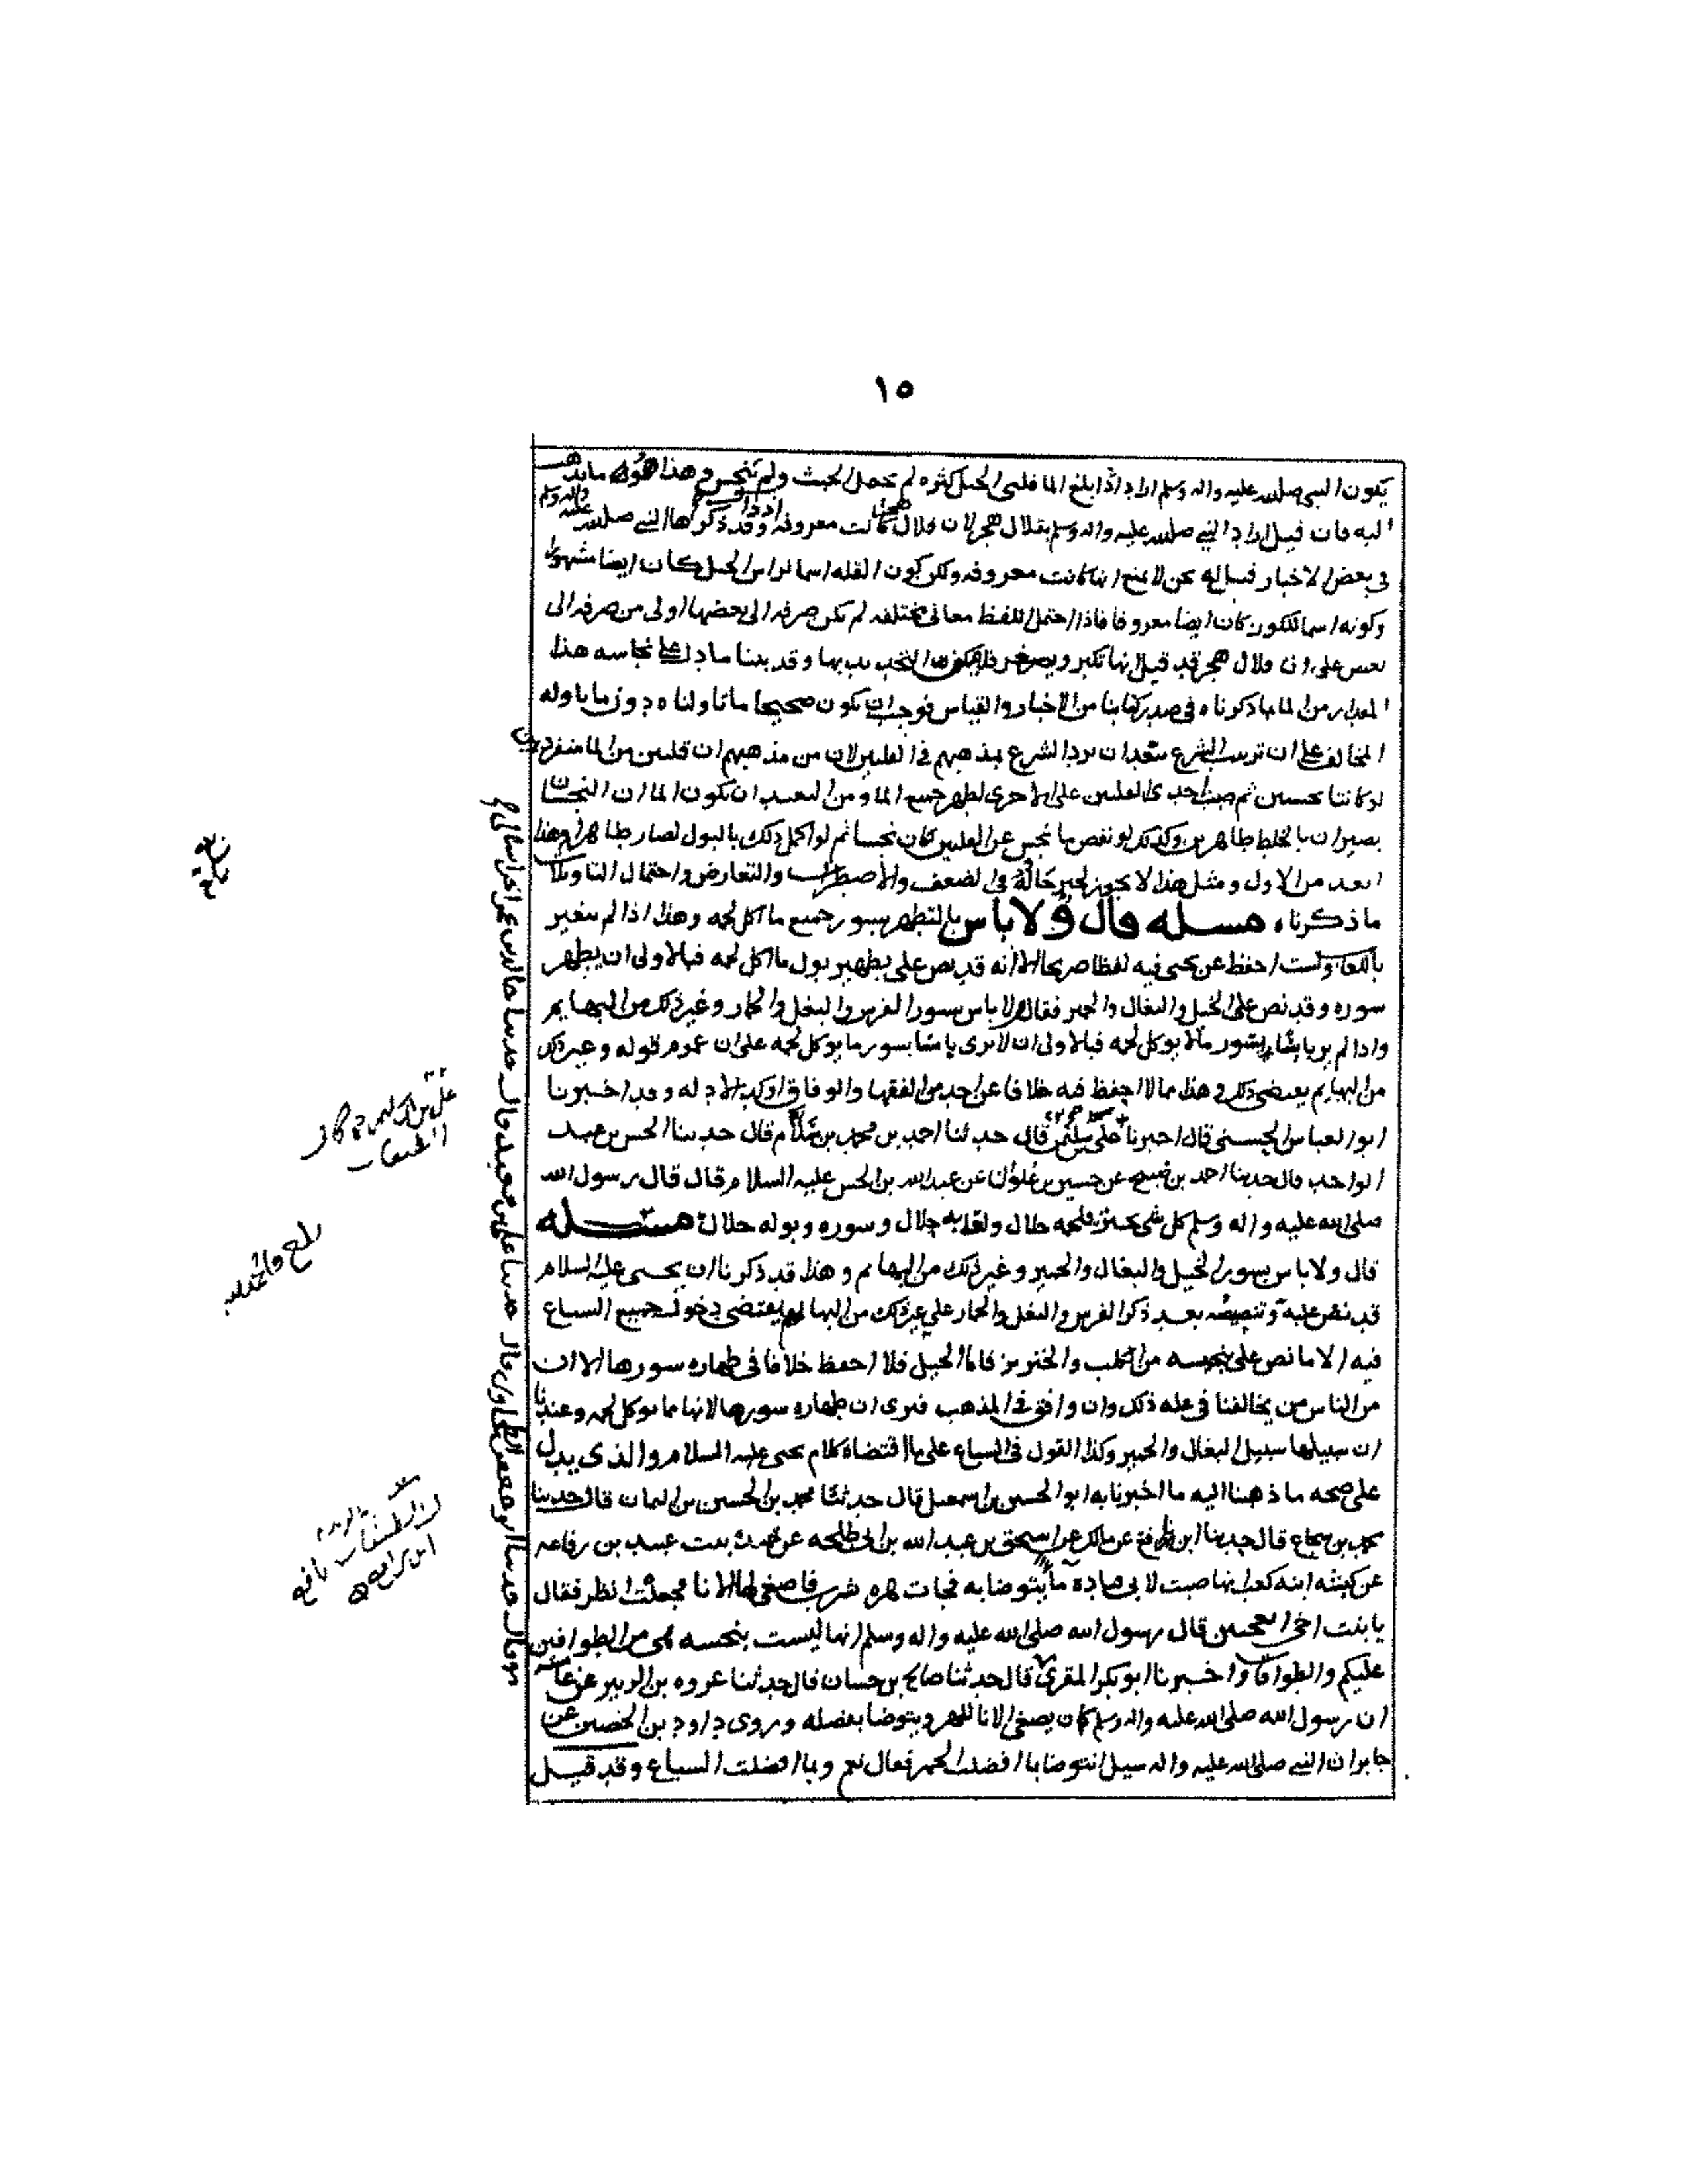 ١٥
يكون النبي صلى الله عليه واله وسلم اراد اذا بلغ الما قلتي الجبل كثره لم تحمل الخبث ولم تنجس وهذا هو ما يذهب
اليه فان قيل اراد النبي صلى الله عليه واله وسلم بقلال هجر لان قلال هجر كانت معروفه وقد ذكرها النبي صلى الله عليه واله وسلم
في بعض الاخبار قيل له نحن لا نمنع انها كانت معروفه ولكن كون القله اسما لراس الجبل كان ايضا مشهورا
وكونه اسما للكوز كان ايضا معروفا فاذا احتمل اللفظ معاني مختلفه لم تكن صرفه الى بعضها اولى من صرفه الى
بعض على ان قلال هجر قد قيل انها تكبر وتصغر فلا يكون التحديد بها وقد بينا ما دل على نجاسه هذا
المقدار من الما بما ذكرناه في صدر كتابنا من الاخبار والقياس فوجب ان يكون صحيحا ما تاولناه دون ما تاوله
المخالف على ان ترتيب الشرع يبعد ان يرد الشرع بمذهبهم في القلتين لان من مذهبهم ان قلتين من الما منفردتين
لو كانتا نجستين ثم صبت احدى القلتين على الاخرى لطهر جميع الما ومن البعيد ان يكون الماان النجسان
يصيران بالخلط طاهرين وكذلك لو نقص ما نجس عن القلتين كان نجسا ثم لو اكمل ذلك بالبول لصار طاهرا وهذا
ابعد من الاول ومثل هذا لا يجوز لخبر حاله في الضعف والاضطراب والتعارض واحتمال التاويلات
ما ذكرنا، مسله قال ولا باس بالتطهر بسور جميع ما اكل لحمه وهذا اذا لم يتغير
باللعاب ولست احفظ عن يحيى فيه لفظا صريحا الا انه قد نص على تطهير بول ما اكل لحمه فبالاولى ان يطهر
سوره وقد نص على الخيل والبغال والحمير فقال ولا باس بسور الفرس والبغل والحمار وغير ذلك من البهايم
واذا لم ير باسا بسور مالا يوكل لحمه فبالاولى ان لا يرى باسا بسور ما يوكل لحمه على ان عموم قوله وغير ذلك
من البهايم يقتضي ذلك وهذا مما لا احفظ فيه خلافا عن احد من الفقها والوفاق اوكد الادله وقد اخبرنا
ابو العباس الحسني قال اخبرنا علي بن قال حدثنا احمد بن محمد بن سلام قال حدثنا الحسن بن عبد
الواحد قال حدثنا احمد بن صبيح عن حسين بن علوان عن عبد الله بن الحسن عليه السلام قال قال رسول الله
صلى الله عليه واله وسلم كل شي يجتر فلحمه حلال ولعابه حلال وسوره وبوله حلال مسئله
قال ولا باس بسور الخيل والبغال والحمير وغير ذلك من البهايم وهذا قد ذكرنا ان يحيى عليه السلام
قد نص عليه وتنصيصه بعد ذكر الفرس والبغل والحمار على غير ذلك من البهايم يقتضي دخول جميع السباع
فيه الا ما نص على تنجيسه من الكلب والخنزير فاما الخيل فلا احفظ خلافا في طهاره سورها الا ان
من الناس من يخالفنا في عله ذلك وان وافق في المذهب فنرى ان طهاره سورها لانها مما يوكل لحمه وعندنا
ان سبيلها سبيل البغال والحمير وكذا القول في السباع على ما اقتضاه كلام يحيى عليه السلام والذي يدل
على صحه ما ذهبنا اليه ما اخبرنا به ابو الحسين بن اسمعيل قال حدثنا محمد بن الحسين بن اليمان قال حدثنا
محمد بن شجاع قال حدثنا ابن نافع عن مالك عن اسحق بن عبد الله بن ابي طلحه عن حميده بنت عبيد بن رفاعه
عن كبشه ابنه كعب انها صبت لابي قتاده ما يتوضا به فجات هره تشرب فاصغى لها الانا فجعلت انظر فقال
يا بنت اخي اتعجبين قال رسول الله صلى الله عليه واله وسلم انها ليست بنجسه هي من الطوافين
عليكم والطوافات واخبرنا ابو بكر المقري قال حدثنا صالح بن حسان قال حدثنا عروه بن الزبير عن عائشه
ان رسول الله صلى الله عليه واله وسلم كان يصغي الانا للهر ويتوضا بفضله وروى داود بن الحصين عن
جابر ان النبي صلى الله عليه واله سيل انتوضا بما افضلت الحمر فقال نعم وبما افضلت السباع وقد قيل
قال حدثنا ابو جعفر الطحاوي قال حدثنا علي بن معبد قال حدثنا خالد بن عمرو الخراساني
بلغ والحمد لله